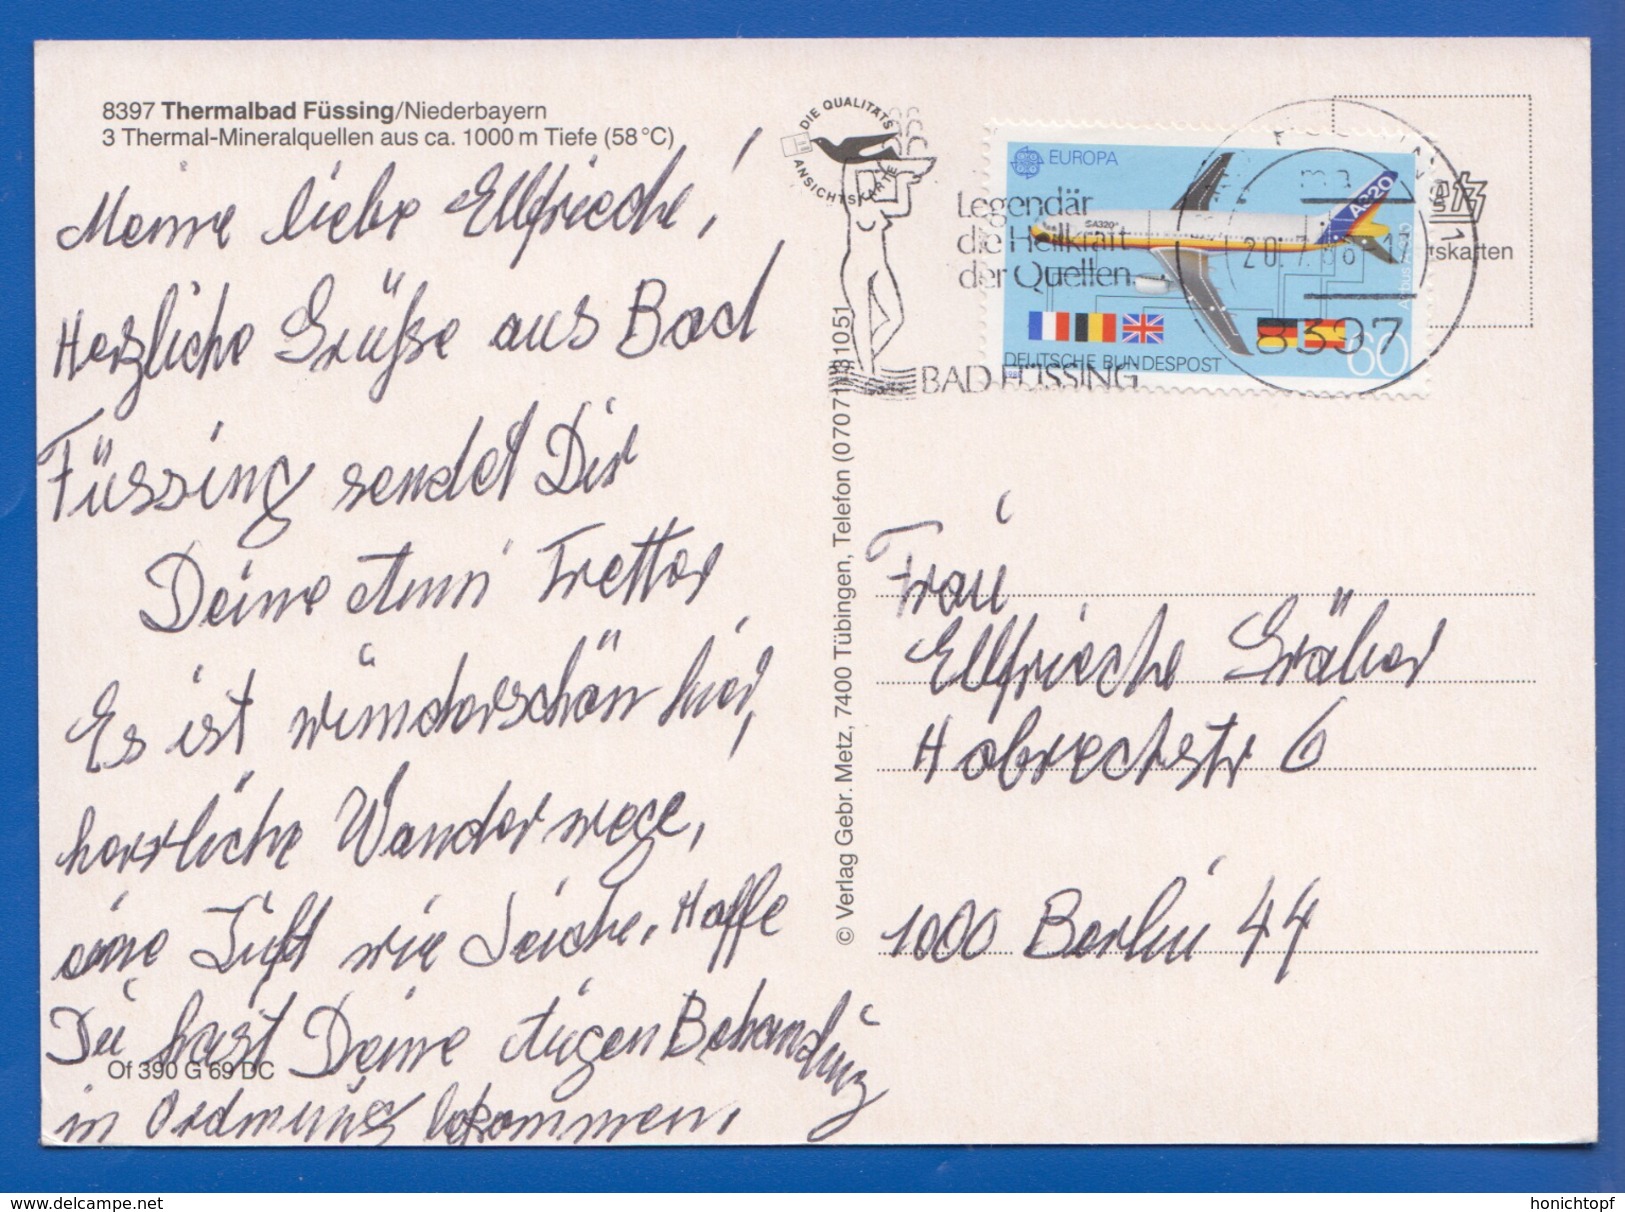 8397 Thermalbad Füssing/Niederbayern
3 Thermal-Mineralquellen aus ca. 1000 m Tiefe (58 °C)
Meine liebe Ellfriede!
Herzliche Grüße aus Bad
Füssing sendet Dir
Deine Anni Tretter
Es ist wunderschön hier,
herrliche Wanderwege,
eine Luft wie Seide. Hoffe
Du hast Deine Augen Behandlung
in Ordnung bekommen.
Of 390 G 69 DC
© Verlag Gebr. Metz, 7400 Tübingen, Telefon (0 70 71)
DIE QUALITÄTS
ANSICHTSKARTE
Legendär
die Heilkraft
der Quellen.
BAD FÜSSING
EUROPA
SA320
A320
DEUTSCHE BUNDESPOST
60
8397
Frau
Ellfriede Gräber
Hobrechtstr 6
1000 Berlin 44
delcampe.net
honichtopf